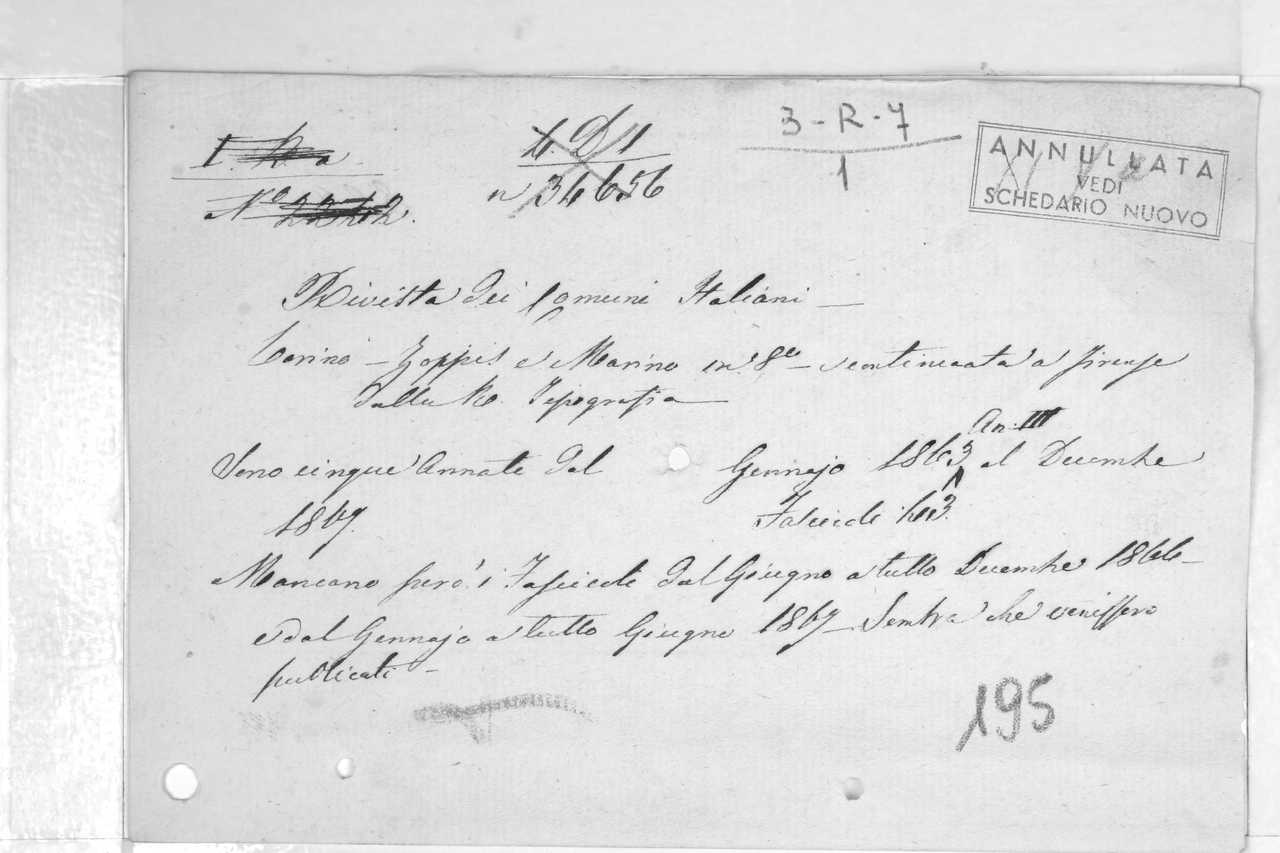 I.
6. D 1
3-R-7
1
N.º 22712.
n 36656
ANNULLATA
VEDI
SCHEDARIO NUOVO
Rivista dei Comuni Italiani —
Torino — Zoppis e Marino in 8º — continuata a Firenze
dalla R. Tipografia —
Sono cinque Annate dal Gennajo 1863 An. III al Decembe
1867. Fascicoli
Mancano però i Fascicoli dal Giugno a tutto Decembe 1866 —
e dal Gennajo a tutto Giugno 1867 — Sembra che venissero
publicati —
195